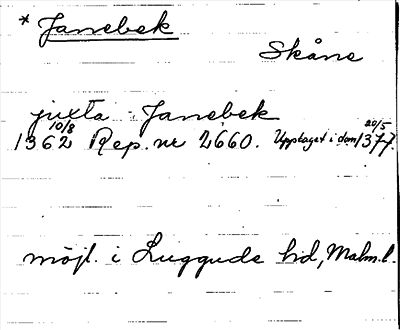 * Janebek
Skåne
juxta Janebek
1362 10/8 Rep. nr 2660. Upptaget i dom 1377 20/5.
möjl. i Luggude hd, Malm.l.